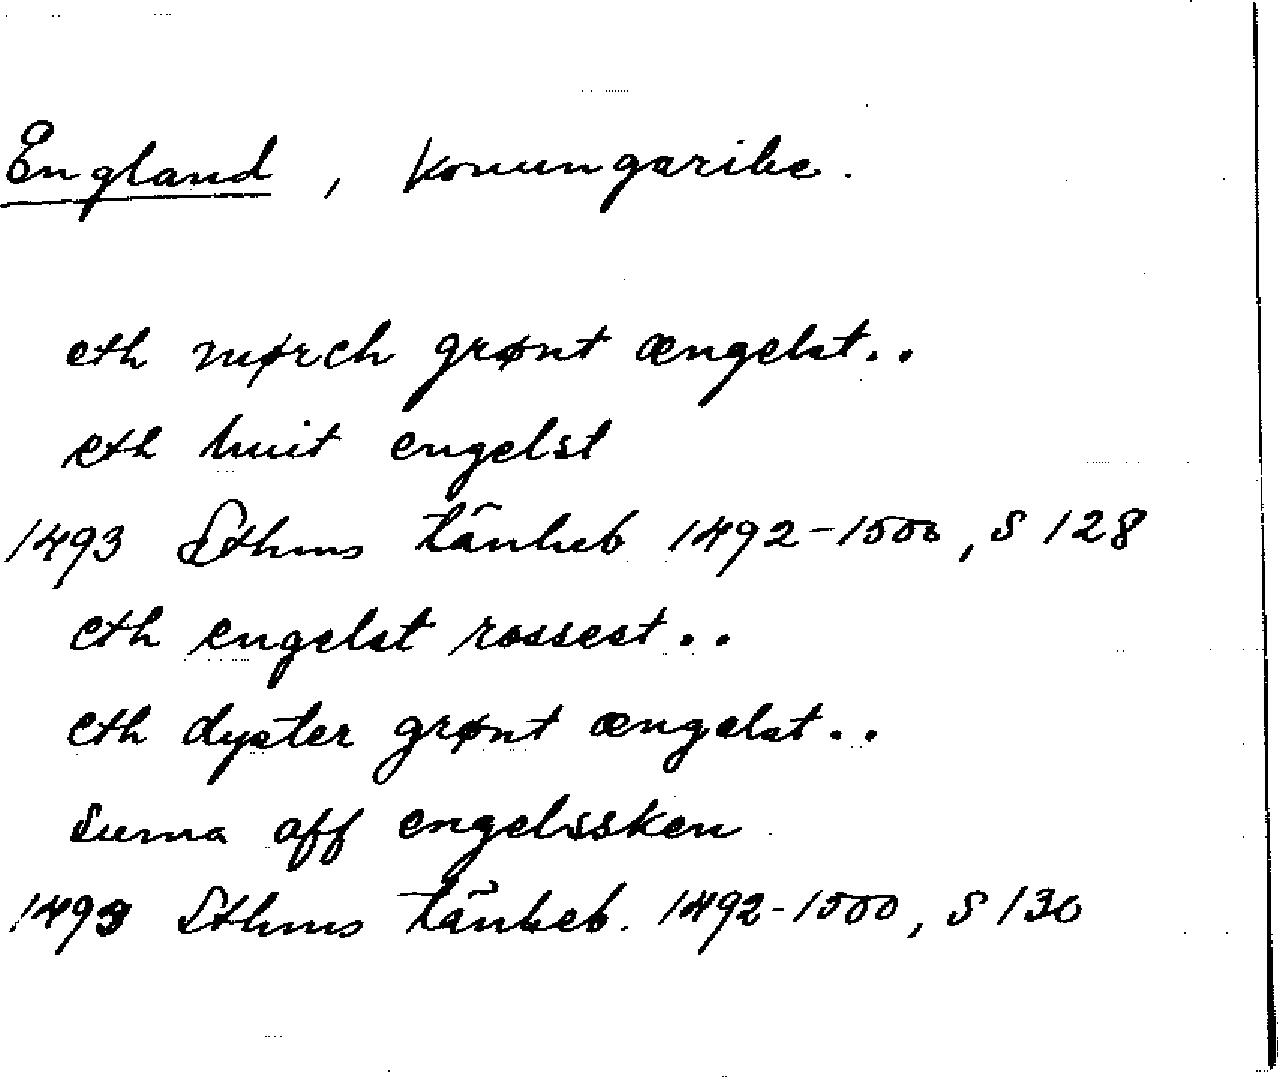 England, konungarike.
eth mørch grønt ængelst..
eth huit engelst
1493 Sthms tänkeb 1492-1500, S 128
eth engelst rossest..
eth dyster grønt ængelst..
Suma aff engelssken
1493 Sthms tänkeb. 1492-1500, S 130